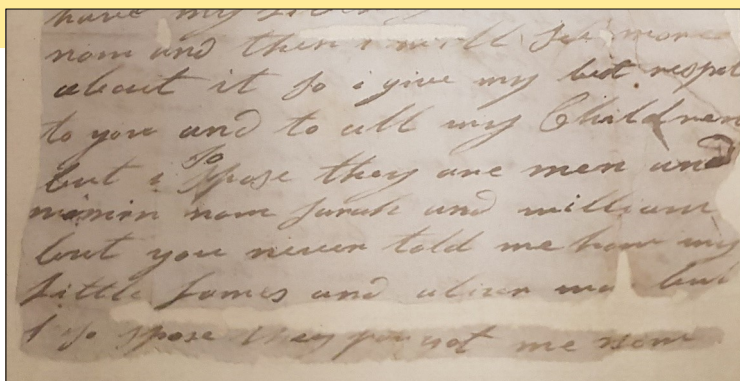 have my
now and then i will see more
about it so i give my best respet
to you and to all my Children
but i so spose they are men and
wimin now sarah and william
but you never told me how my
Little James and was but
I so spose they got me now